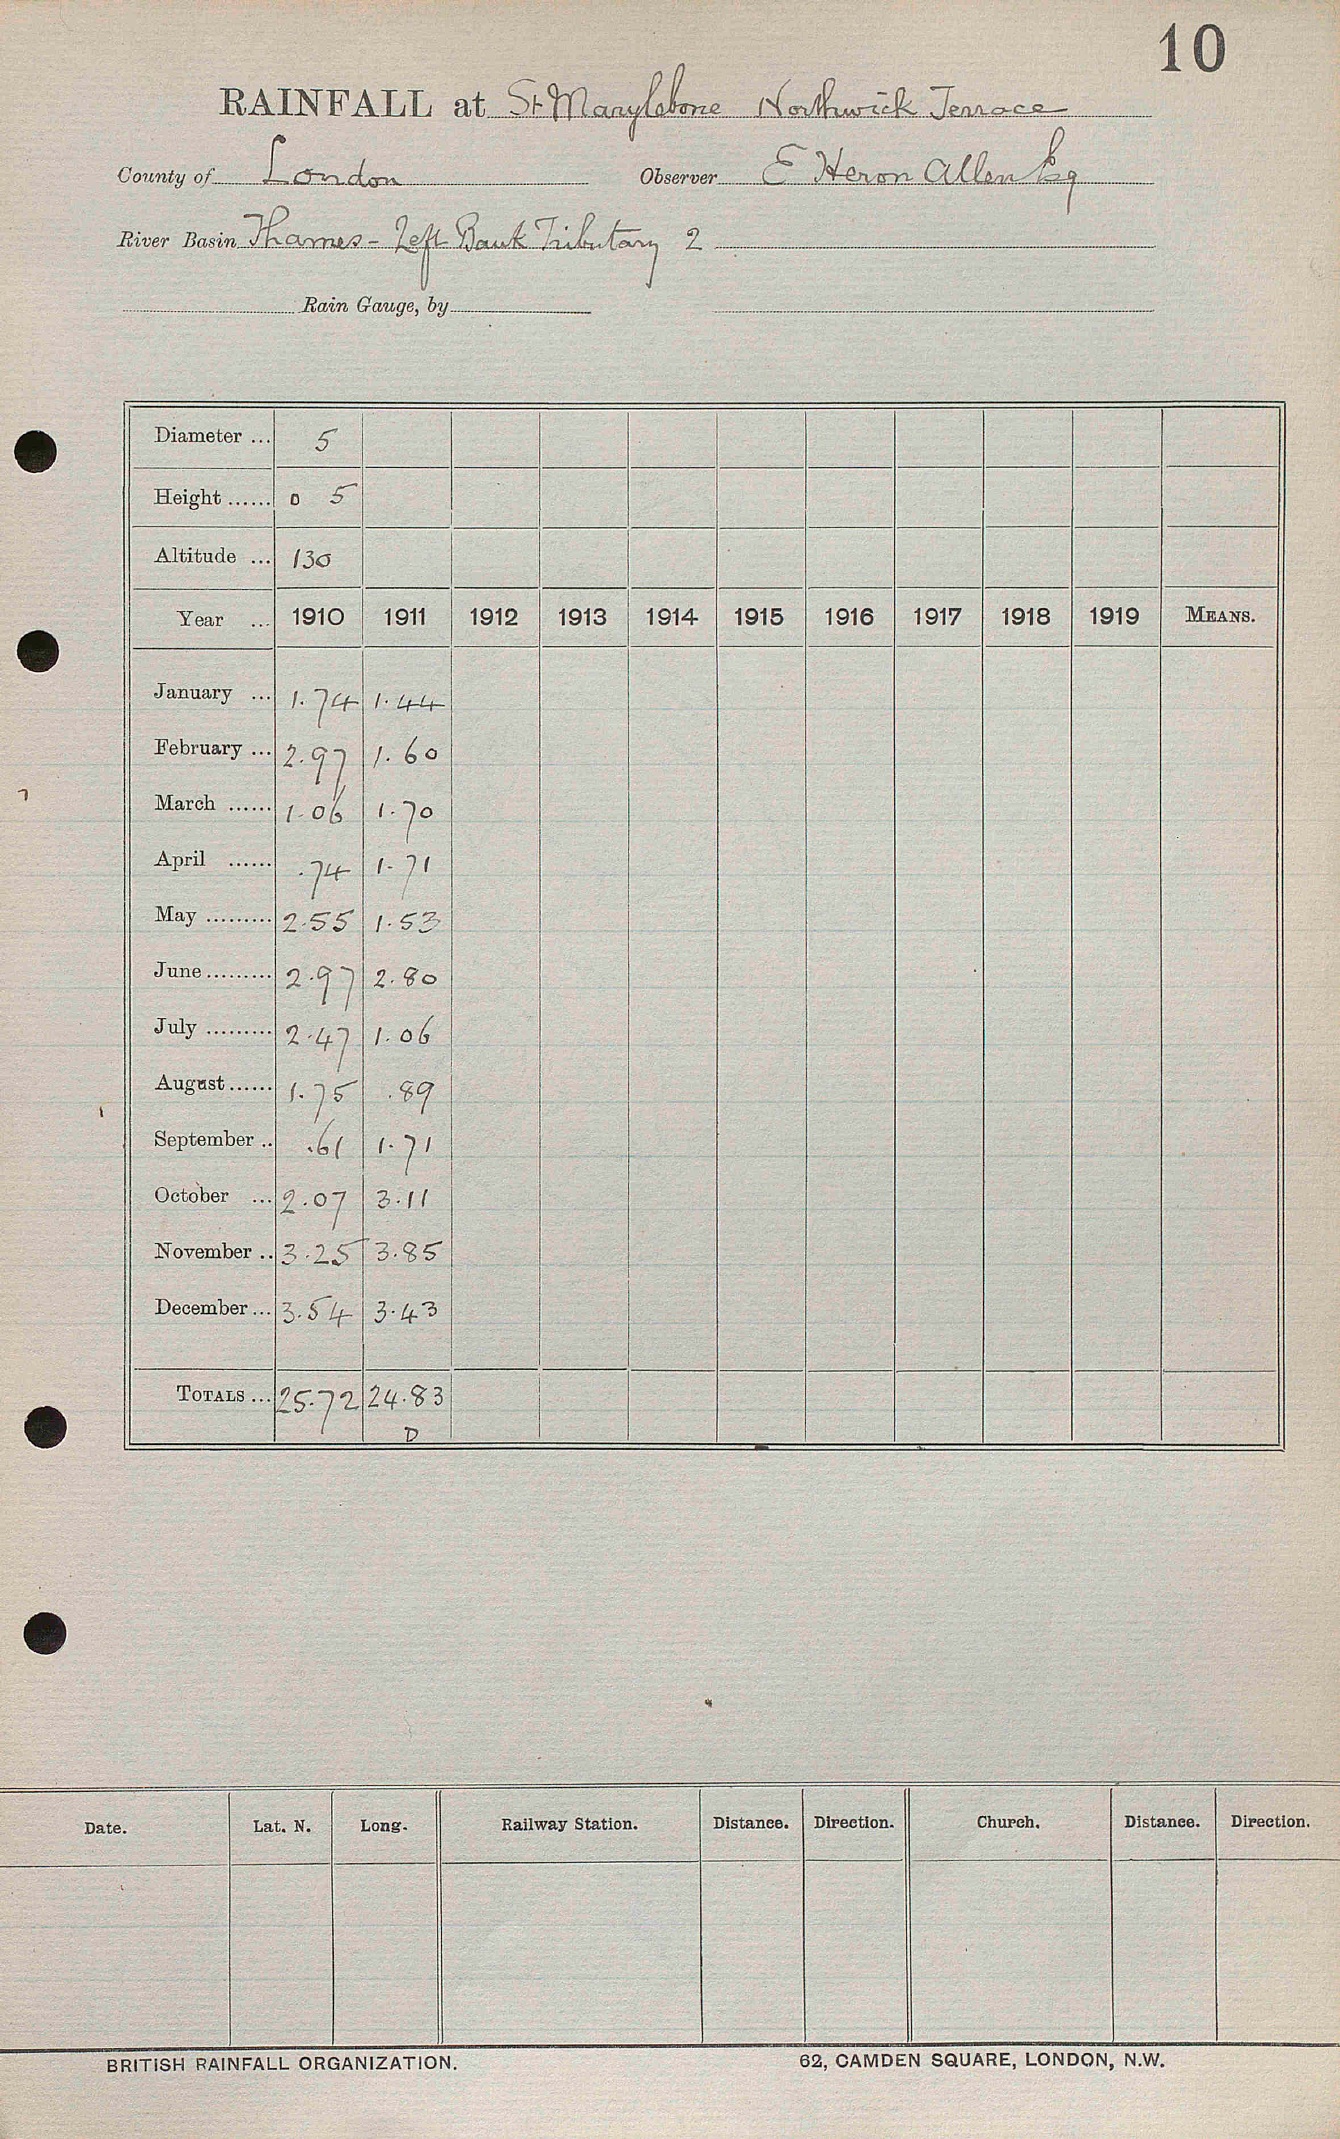 10
RAINFALL at St Marylebone Northwick Terrace
County of London Observer E Heron Allen Esq
River Basin Thames - Left Bank Tributary 2
Rain Gauge, by
Diameter ... 5
Height ...... 0 5
Altitude ... 130
Year ... 1910 1911 1912 1913 1914 1915 1916 1917 1918 1919 MEANS.
January ... 1.74 1.44
February ... 2.97 1.60
March ...... 1.06 1.70
April ...... .74 1.71
May ......... 2.55 1.53
June ......... 2.97 2.80
July ......... 2.47 1.06
August ...... 1.75 .89
September .. .61 1.71
October ... 2.07 3.11
November .. 3.25 3.85
December ... 3.54 3.43
TOTALS ... 25.72 24.83
D
Date. Lat. N. Long. Railway Station. Distance. Direction. Church. Distance. Direction.
BRITISH RAINFALL ORGANIZATION. 62, CAMDEN SQUARE, LONDON, N.W.